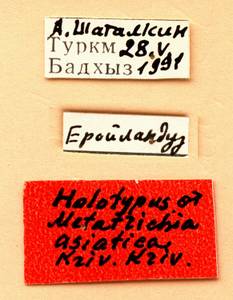 А. Шаталкин
Туркм 28.V.
Бадхыз 1991
Еройландуз
Holotypus ♂
Metatrichia
asiatica,
Kriv. Kriv.